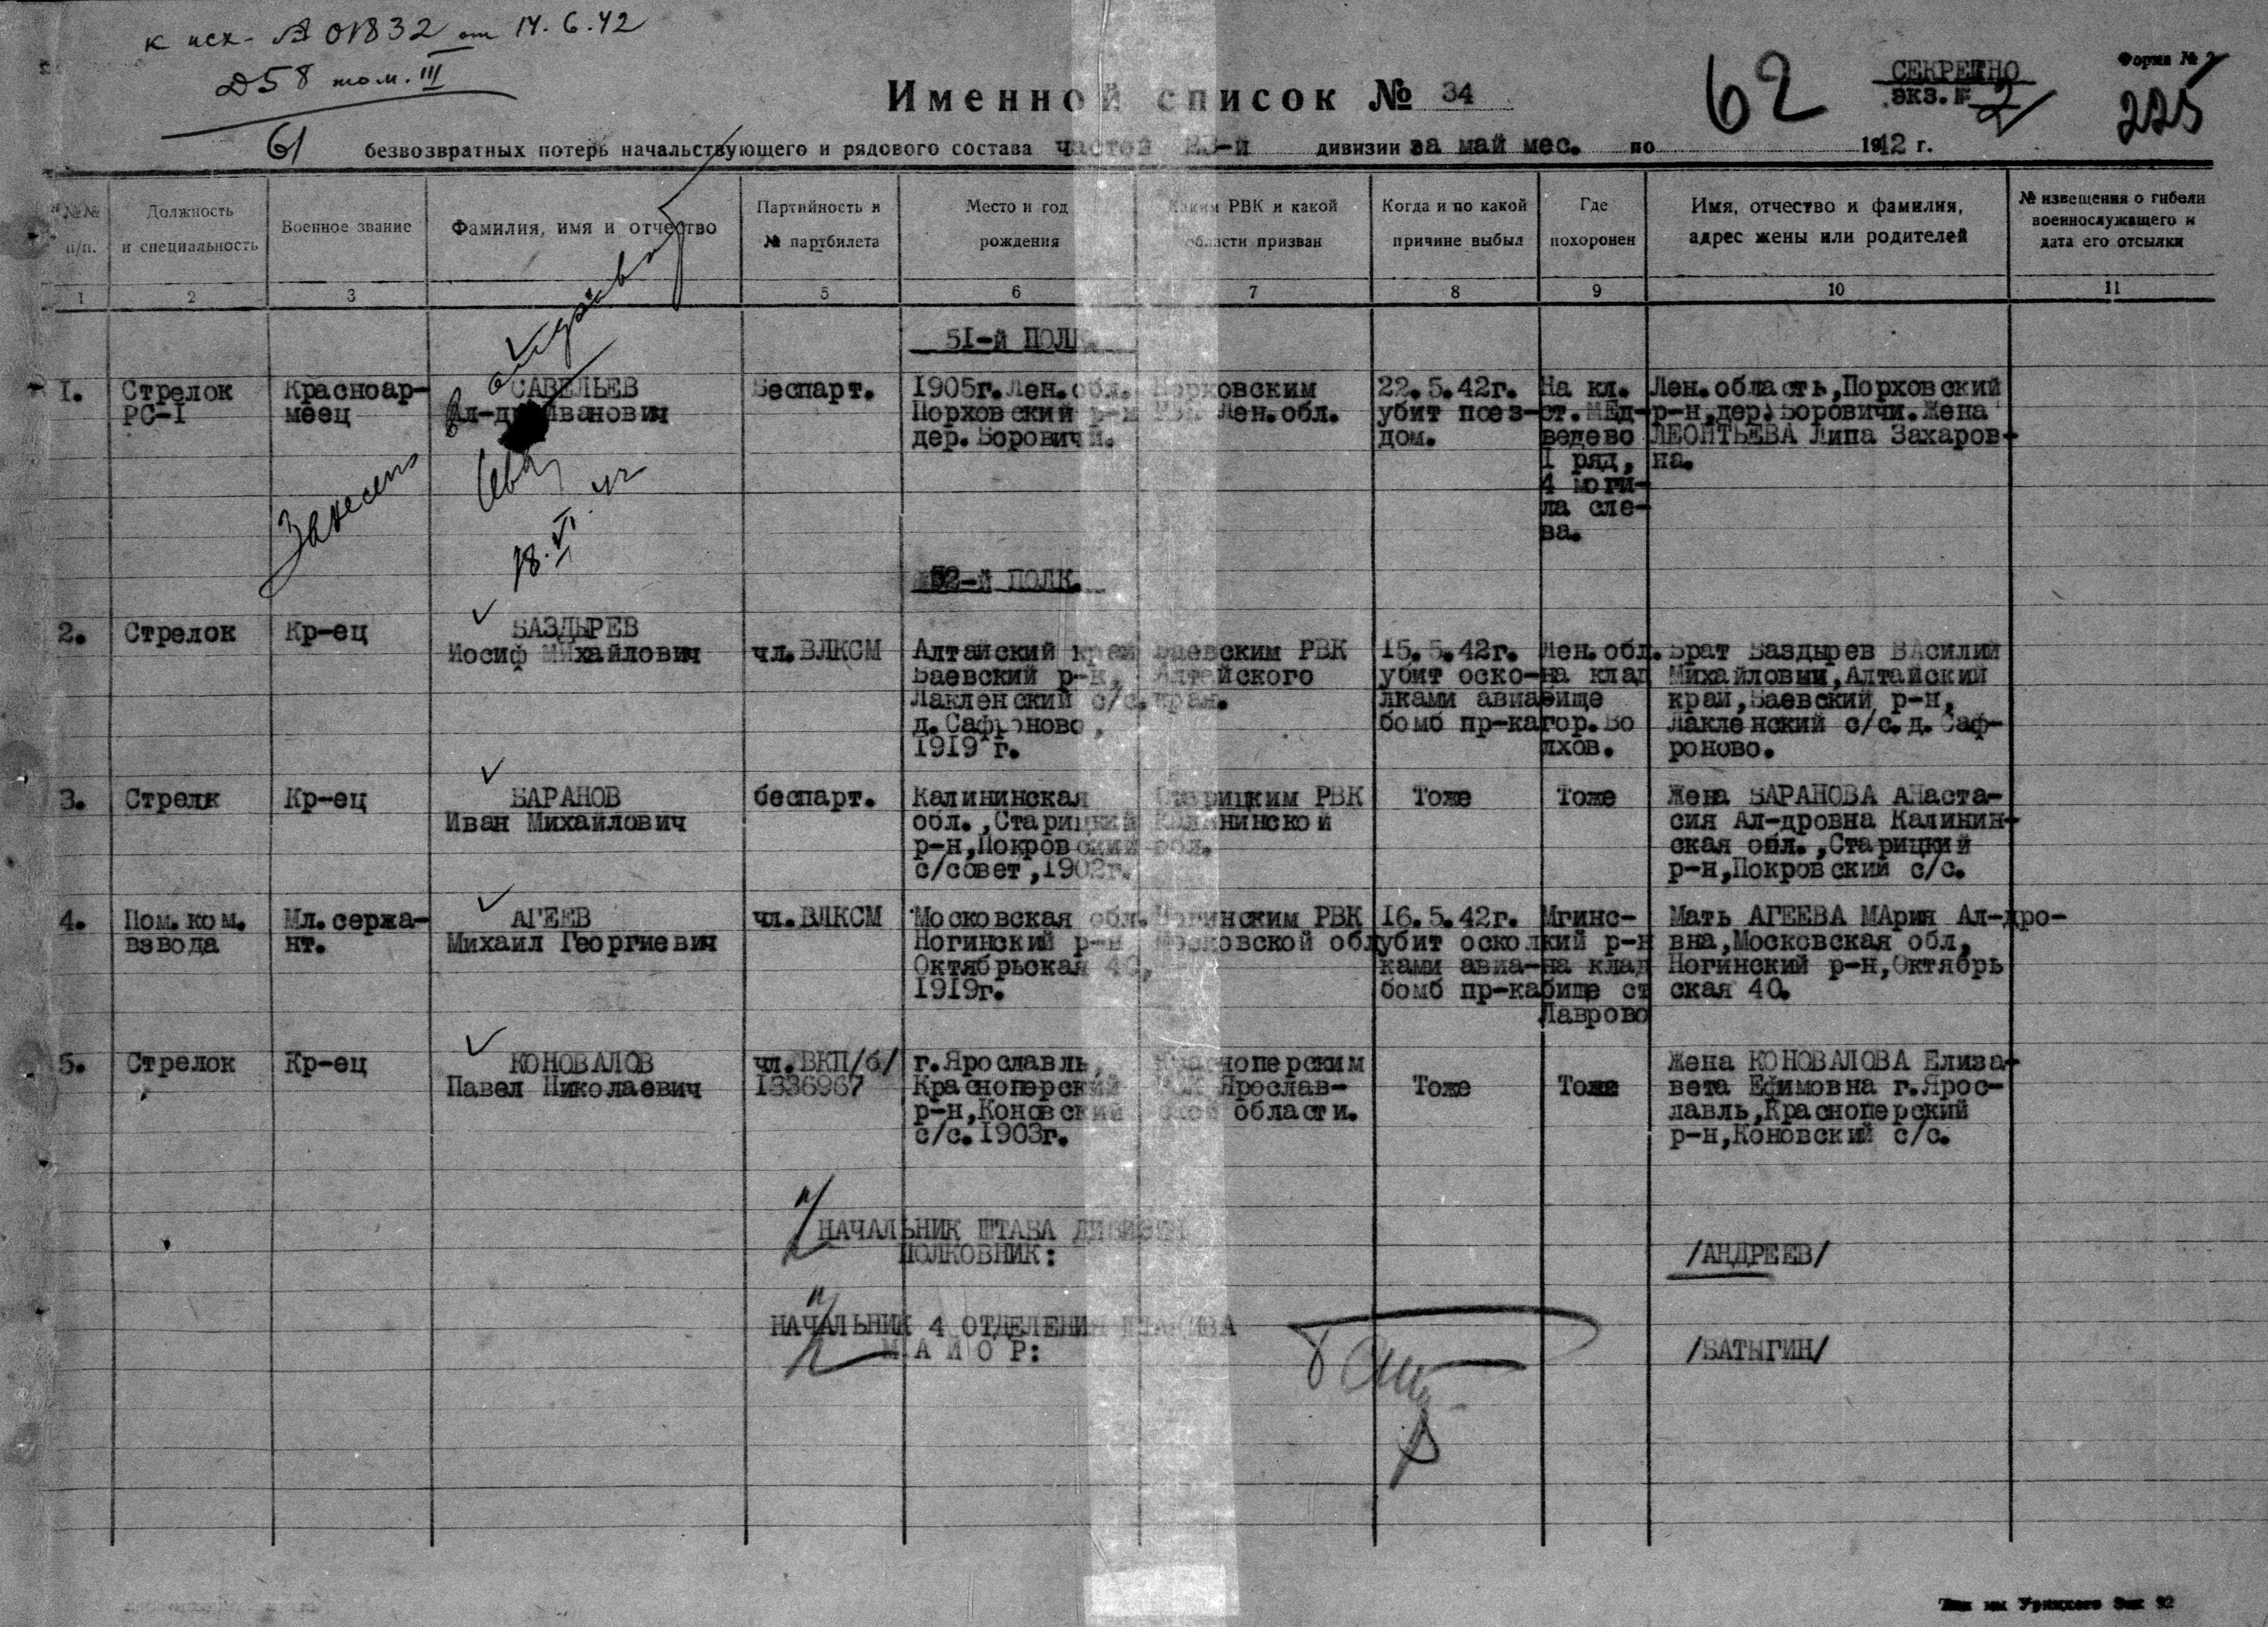 к исх- № 01832 от 14.6.42
Д58 том. III
Форма №
СЕКРЕТНО
экз. № 2
Именной список № 34
62
225
61
безвозвратных потерь начальствующего и рядового состава частей 23-й дивизии за май мес. по 1942 г.
№№ п/п.
Должность и специальность
Военное звание
Фамилия, имя и отчество
Партийность и № партбилета
Место и год рождения
Каким РВК и какой области призван
Когда и по какой причине выбыл
Где похоронен
Имя, отчество и фамилия, адрес жены или родителей
№ извещения о гибели военнослужащего и дата его отсылки
1 2 3 5 6 7 8 9 10 11
51-й ПОЛК.
1. Стрелок Красноар- САВЕЛЬЕВ Беспарт. 1905г.Лен.обл. Порховским 22.5.42г. На кл. Лен.область,Порховский
РС-1 меец Ал-др Иванович Порховский р-н РВК Лен.обл. убит поез- ст. МЕд- р-н,дер.Боровичи.Жена
дер.Боровичи. дом. ведево ЛЕОНТЬЕВА Липа Захаров-
1 ряд, на.
4 моги-
ла сле-
ва.
Занесен
18.VI.42
52-й ПОЛК.
2. Стрелок Кр-ец БАЗДЫРЕВ
Иосиф МИхайлович чл.ВЛКСМ Алтайский край Баевским РВК 15.5.42г. Лен.обл. Брат Баздырев ВАсилий
Баевский р-н, Алтайского убит оско- на клад Михайловыи,Алтайский
Лакленский с/с. края. лками авиа бище край,Баевский р-н,
д.Сафроново, бомб пр-ка гор.Во Лакленский с/с.д.Саф-
1919 г. лхов. роново.
3. Стрелк Кр-ец БАРАНОВ беспарт. Калининская Старицким РВК Тоже Тоже Жена БАРАНОВА АНаста-
Иван Михайлович обл.,Старицкий Калининской сия Ал-дровна Калинин-
р-н,Покровский обл. ская обл.,Старицкий
с/совет,1902г. р-н,Покровский с/с.
4. Пом.ком. Мл.сержа- АГЕЕВ чл.ВЛКСМ Московская обл. Ногинским РВК 16.5.42г. Мгинс- Мать АГЕЕВА МАрия Ал-дро-
взвода нт. Михаил Георгиевич Ногинский р-н Московской обл убит оскол кий р-н вна,Московская обл,
Октябрьская 40, ками авиа- на клад Ногинский р-н,Октябрь
1919г. бомб пр-ка бище ст ская 40.
Лаврово
5. Стрелок Кр-ец КОНОВАЛОВ чл.ВКП/б/ г.Ярославль, Красноперским Жена КОНОВАЛОВА Елиза-
Павел Николаевич 1336967 Красноперский РВК Ярослав- Тоже Тоже вета Ефимовна г.Ярос-
р-н,Коновский ской области. лавль,Красноперский
с/с.1903г. р-н,Коновский с/с.
НАЧАЛЬНИК ШТАБА ДИВИЗИИ
ПОЛКОВНИК: /АНДРЕЕВ/
НАЧАЛЬНИК 4 ОТДЕЛЕНИЯ ШТАДИВА
МАЙОР: /БАТЫГИН/